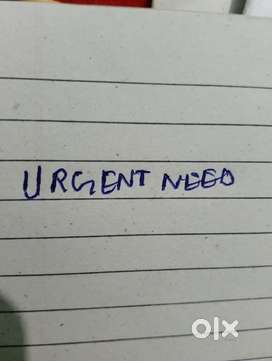 URGENT NEED
olx